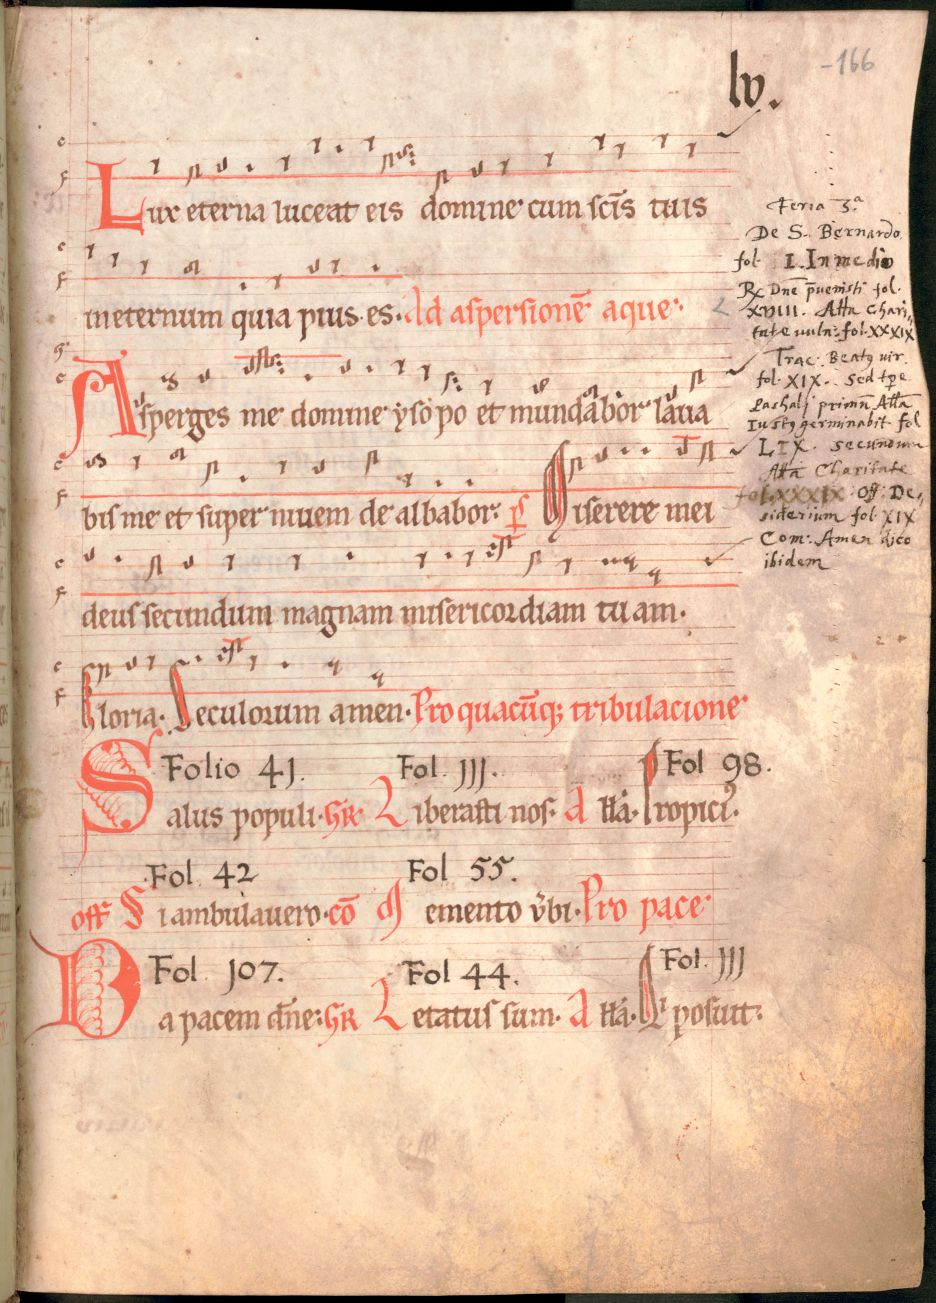 -166
lv.
Lux eterna luceat eis domine cum scīs tuis
ineternum quia pius es. Ad aspersionē aque.
Asperges me domine ysopo et mundabor laua
bis me et super niuem de albabor. Miserere mei
deus secundum magnam misericordiam tuam.
Gloria. Seculorum amen. Pro quacūq; tribulacione
Folio 41. Fol. III. Fol 98.
Salus populi. Gr Liberasti nos. A llā. Propici⁹.
Fol 42 Fol 55.
off Si ambulauero. cō Memento v̄bi. Pro pace.
Fol 107. Fol 44. Fol. III
Da pacem dn̄e. Gr Letatus sum. A llā. Qi posuit.
Feria 3.ª
De S. Bernardo.
fol I. In medio
℞ Dne p̄uenisti fol.
XVIII. Alła Chari,
tate uuln: fol. XXXIX
Trac. Beatꝯ vir.
fol. XIX. Sed tp̄e
Pashali primū Alła
Iustꝯ germinabit fol
LIX. Secundum
Alła Charitate
fol. XXXIX. Off: De,
siderium fol XIX
Com. Amen dico
ibidem